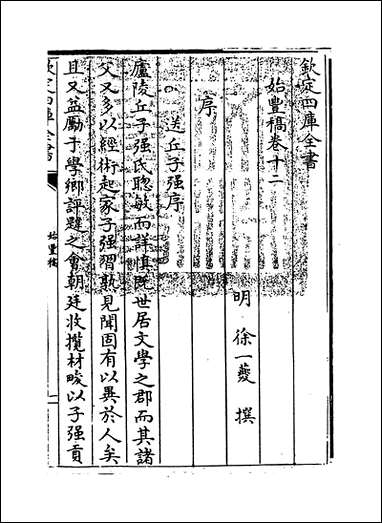 欽定四庫全書
始豐稿卷十二
明 徐一夔 撰
序
送丘子强序
廬陵丘子强氏聰敏而詳慎既世居文學之郡而其諸
父又多以經術起家子强習熟見聞固有以異於人矣
且又益勵于學鄉評韙之會朝廷收攬材畯以子强貢
欽定四庫全書
始豐稿
一